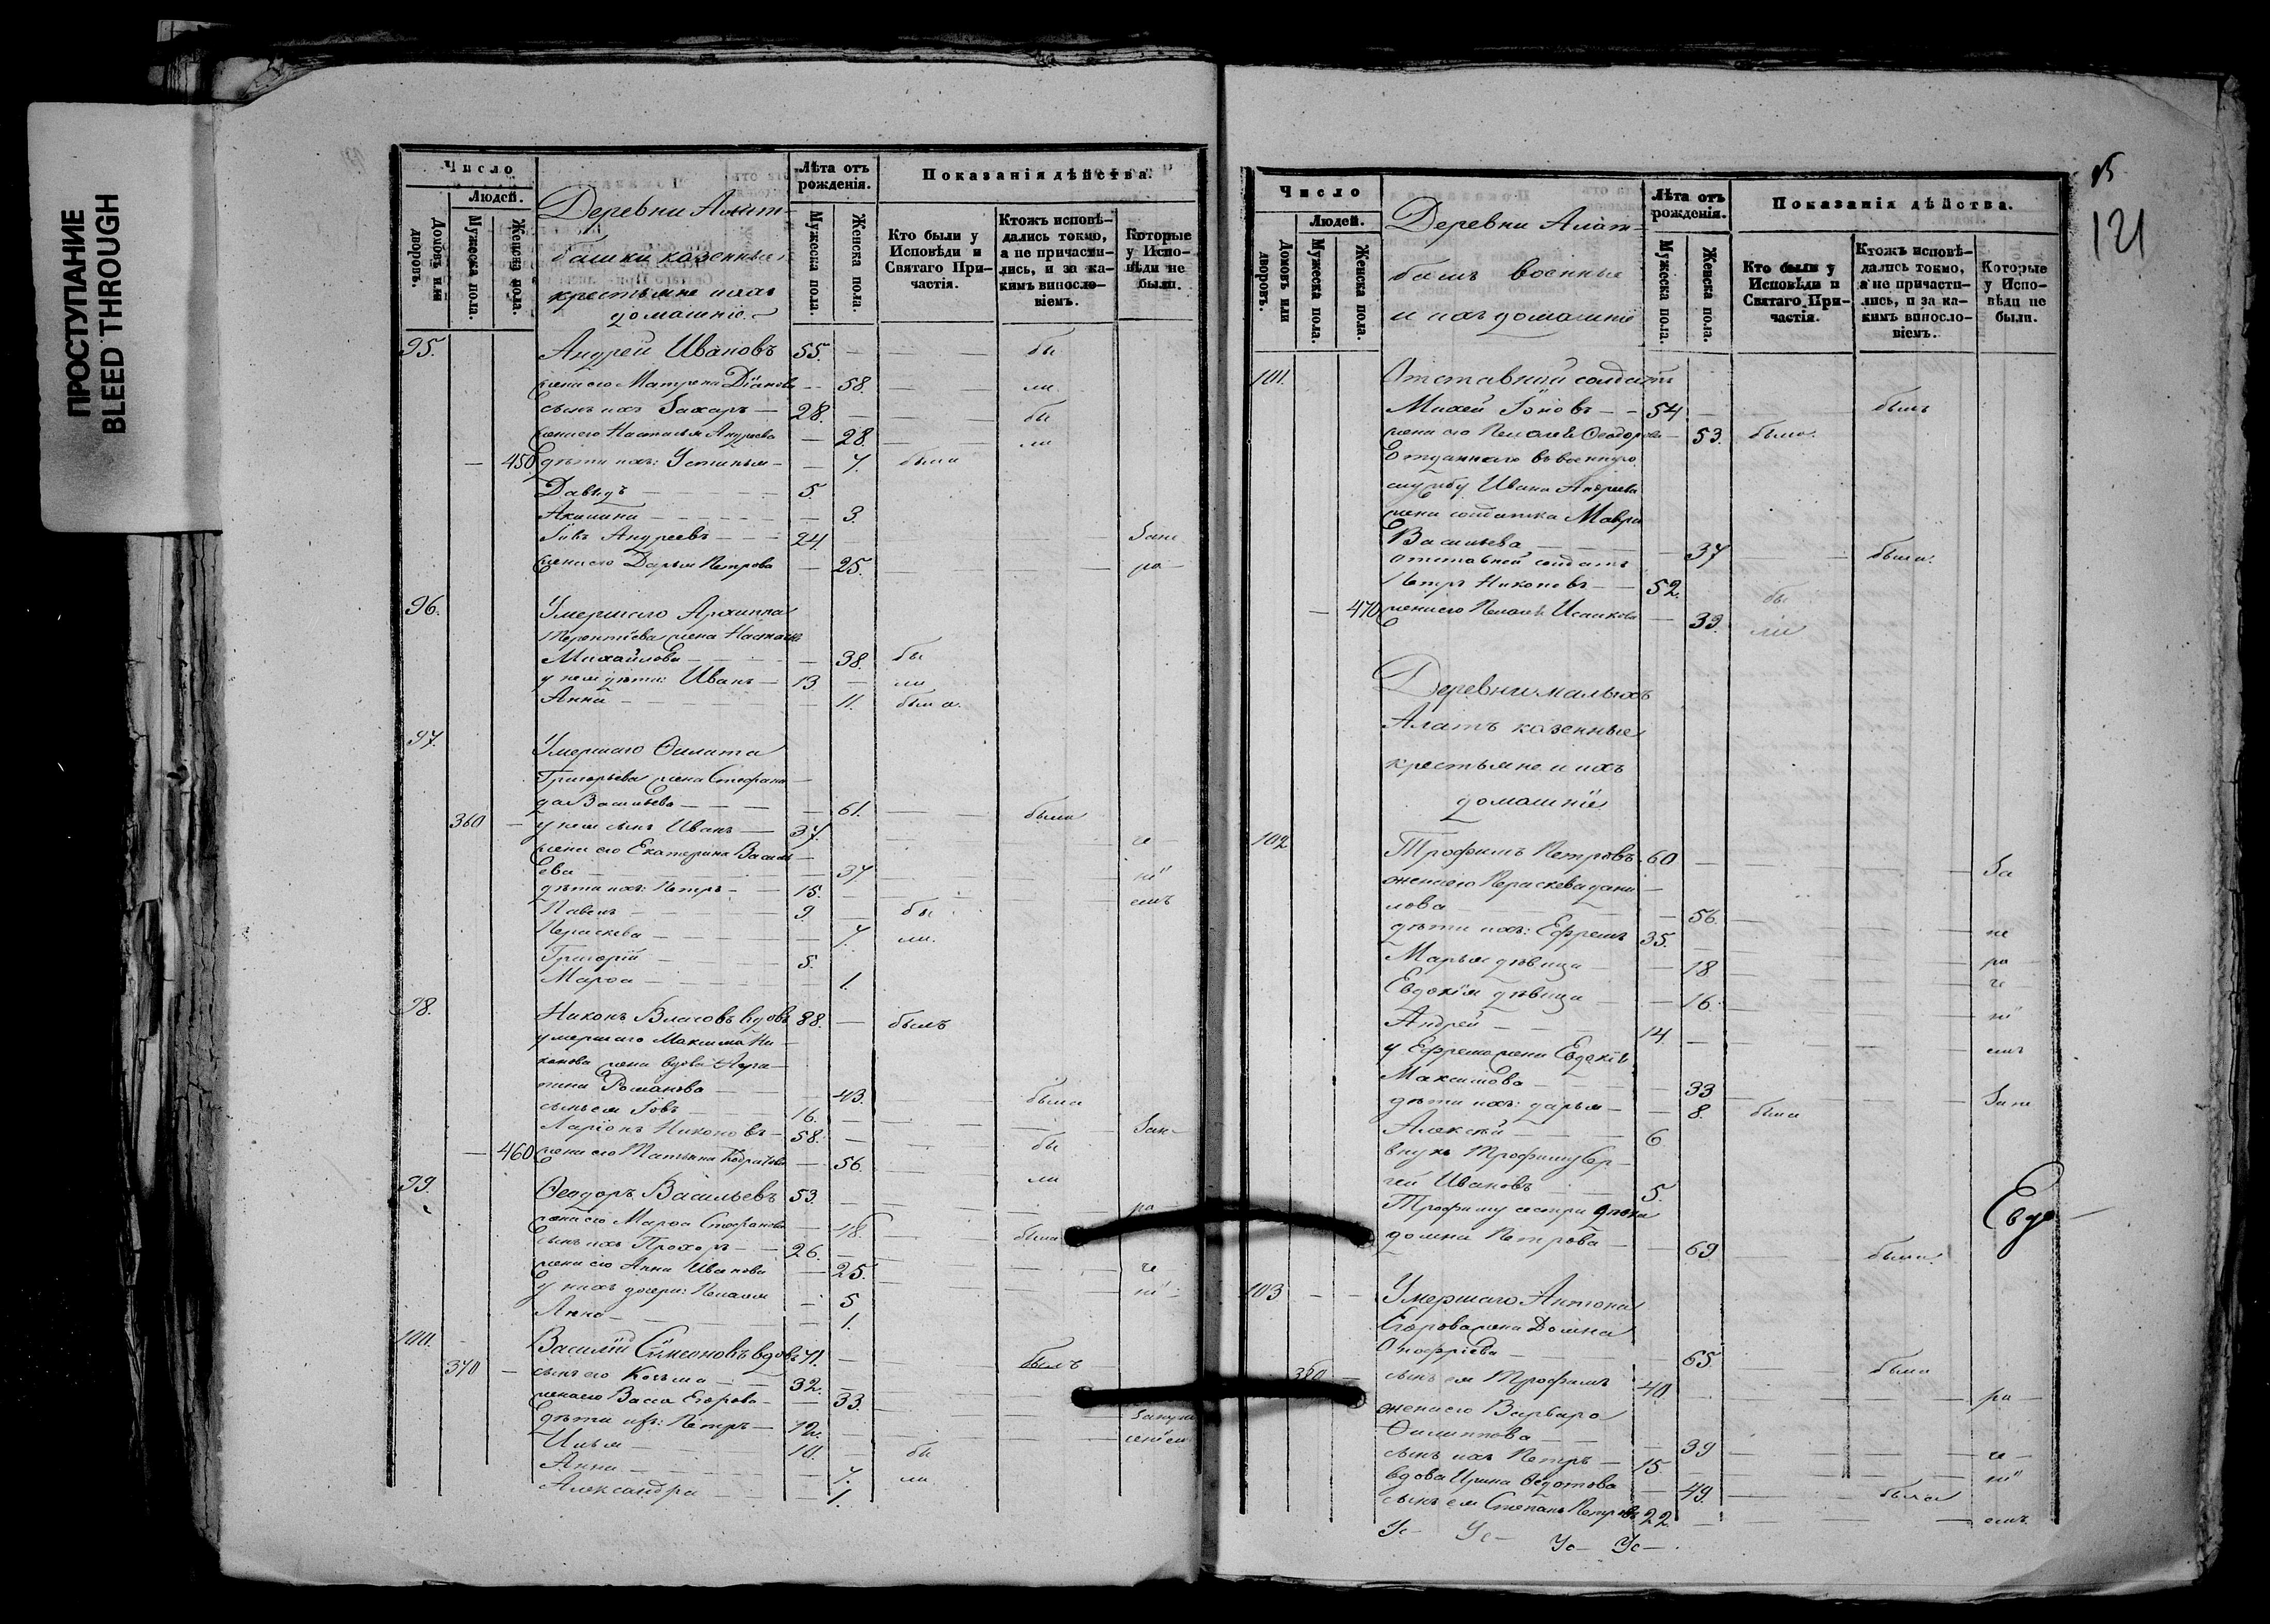 ПРОСТУПАНИЕ
BLEED THROUGH
Число
Людей.
Домовъ или дворовъ.
Мужеска пола.
Женска пола.
Деревни Алат-
башки казенные
крестьяне и ихъ
домашніе.
Лѣта отъ рожденія.
Мужеска пола.
Женска пола.
Показанія дѣйства.
Кто были у Исповѣди и Святаго При-частія.
Ктожъ исповѣ-дались токмо, а не причасти-лись, и за ка-кимъ виносло-віемъ.
Которые у Испо-вѣди не были.
95. Андрей Ивановъ 55. — — — бы
жена его Матрена — 58. — ли
сынъ ихъ Захаръ — 28. — бы
жена его Настасья Андреева — 28. — ли
— 450 дѣти ихъ: Устинья — — 7. была
Давыдъ — 5
Акилина — 3.
Іовъ Андреевъ — 24. — Зане
жена его Дарья Петрова — 25. — ра-
96. Умершаго Архиппа
Терентіева жена Настасья
Михайлова — 38. бы
у нея дѣти: Иванъ — 13. — ли
Анна — 11. была.
97. Умершаго Филата
Григорьева жена Стефани-
да Васильева — 61. — была
360 — у нея сынъ Иванъ — 37. — че
жена его Екатерина Василь-
ева — 37. — ні
дѣти ихъ: Петръ — 15. — емъ
Павелъ — 9. — бы
Параскева — 7. ли.
Григорій — 5.
Марѳа — 1.
98. Никонъ Власовъ вдовъ 88. — былъ
умершаго Максима Ни-
конова жена вдова Агра-
пина Романова — 43. — была
сынъ ея Іовъ — 16. —
Ларіонъ Никоновъ — 58. — бы Зане-
— 460 жена его Татьяна — 56. — ли
99. Ѳеодоръ Васильевъ 53. — ра
жена его Марѳа Стефанова — 48. — была
сынъ ихъ Прохоръ — 26. —
жена его Анна Иванова — 25. — че
у нихъ дочери: Пелагея — 5 ні
Анна — 1.
100. Василій Симеоновъ вдовъ 71. — былъ
370 — сынъ его Козьма — 32. —
жена его Васса Егорова — 33.
дѣти ихъ: Петръ — 12. —
Илья — 10. — бы
Анна — 7. ли
Александра — 1.
121
Число
Людей.
Домовъ или дворовъ.
Мужеска пола.
Женска пола.
Деревни Алат-
башъ военные
и ихъ домашніе
Лѣта отъ рожденія.
Мужеска пола.
Женска пола.
Показанія дѣйства.
Кто были у Исповѣди и Святаго При-частія.
Ктожъ исповѣ-дались токмо, а не причасти-лись, и за ка-кимъ виносло-віемъ.
Которые у Испо-вѣди не были.
101. Отставный солдатъ
Михей Іоновъ — 54 — былъ
жена его Пелагея Ѳеодорова — 53. была.
Отданнаго въ военную
службу Ивана Андреева
жена солдатка Мавра
Васильева — 37 — была.
отставной солдатъ
Петръ Никоновъ — 52. бы
— 470 жена его Пелагея Исаикова — 39. ли
Деревни малыхъ
Алатъ казенные
крестьяне и ихъ
домашніе
102 Трофимъ Петровъ 60 — За
жена его Параскева Дани-
лова — 56. —
дѣти ихъ: Ефремъ 35. — не
Марья дѣвица — 18 — ра
Евдокія дѣвица — 16. — че
Андрей — 14. — ні
у Ефрема жена Евдокія — емъ
Максимова — 33
дѣти ихъ: Дарья — 8. была Зане
Алексѣй — 6.
внукъ Трофиму Сер-
гей Ивановъ — 5.
Трофиму сестра
Петрова — 69 — была.
Евдо—
103 — — Умершаго Антона
Егорова жена Домна
Онофріева — 65. — была
380 — сынъ ея Трофимъ 40 — ра—
жена его Варвара
Филиппова — 39 — че—
сынъ ихъ Петръ — 15. — ні
вдова Ирина Ѳедотова — 49. — была
сынъ ея Степанъ Петровъ 22. — емъ.